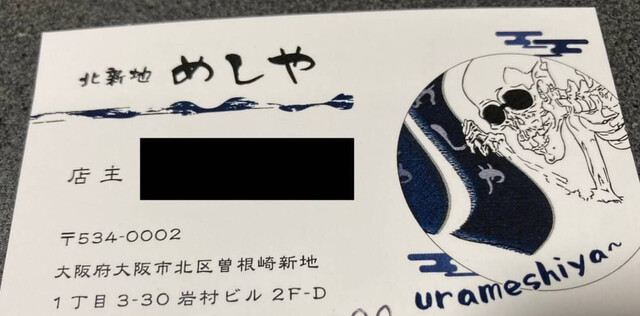 北新地 めしや
店主
〒534-0002
大阪府大阪市北区曽根崎新地
1丁目3-30岩村ビル2F-D
urameshiya~